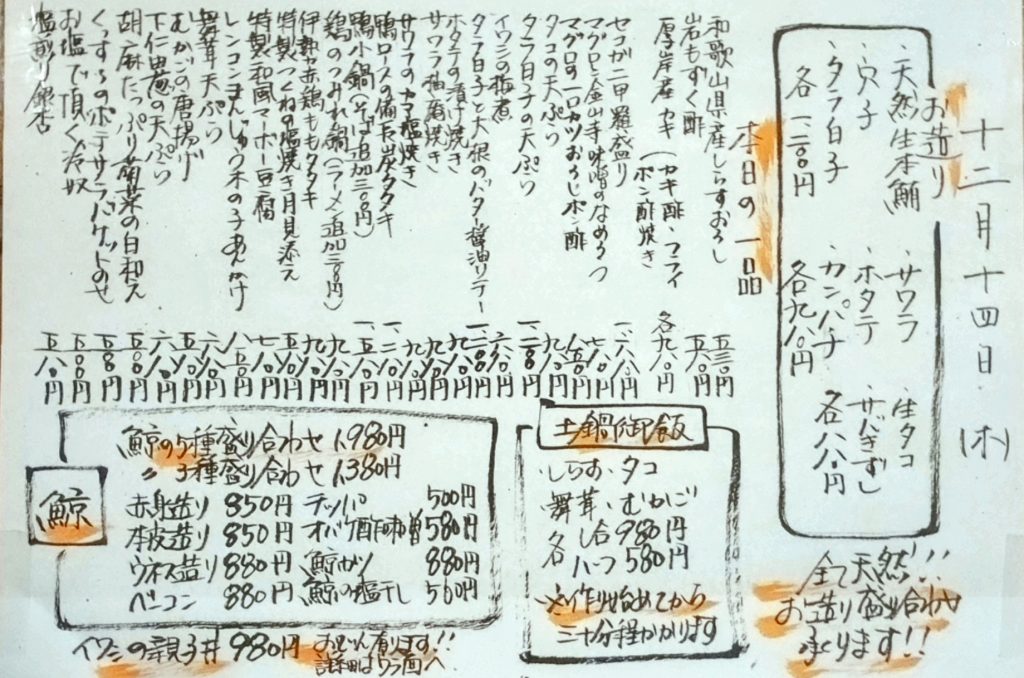 十二月十四日(木)
お造り
・天然生本鮪
・穴子
・タラ白子
各一二〇〇円
・サワラ
・ホタテ
・カンパチ
各九八〇円
・生タコ
・サバきずし
各八八〇円
全て天然!!
お造り盛り合わせ
承ります!!
本日の一品
和歌山県産しらすおろし 五三〇円
岩もずく酢 五八〇円
厚岸産カキ(カキ酢・フライ ポン酢焼き 各九八〇円
セコガニ甲羅盛り 一、六八〇円
マグロと金山寺味噌のなめろう 七八〇円
マグロの一口カツおろしポン酢 八五〇円
タコの天ぷら 九八〇円
タラ白子の天ぷら 一、二〇〇円
イワシの梅煮 六八〇円
タラ白子と大根のバター醤油ソテー 一、二〇〇円
ホタテの漬け焼き 九八〇円
サワラ柚庵焼き 九八〇円
サワラのカマ塩焼き 九八〇円
鴨ロースの備長炭タタキ 一、二八〇円
鴨小鍋(そば追加三〇〇円)
鶏のつみれ鍋(ラーメン追加三〇〇円)
伊勢赤鶏ももタタキ
特製つくねの塩焼き月見添え
特製和風マーボー豆腐
レンコンまんじゅうきの子あんかけ
舞茸天ぷら
むかごの唐揚げ
下仁田葱の天ぷら
胡麻たっぷり菊菜の白和え
くんずるのポテサラバケットのせ
お塩で頂く冷奴
塩煎り銀杏 五八〇円
鯨
鯨の5種盛り合わせ 1,980円
〃 3種盛り合わせ 1,380円
赤身造り 850円 テッパ 500円
本皮造り 850円 オバケ酢味噌 580円
ウネス造り 880円 鯨カツ 880円
ベーコン 880円 鯨の塩干し 560円
イワシの親子丼 980円
おでん有ります!!
詳細はうら面へ
土鍋御飯
・しらす・タコ
・舞茸・むかご
各 一合 980円
ハーフ 580円
※作り始めてから
三十分程かかります